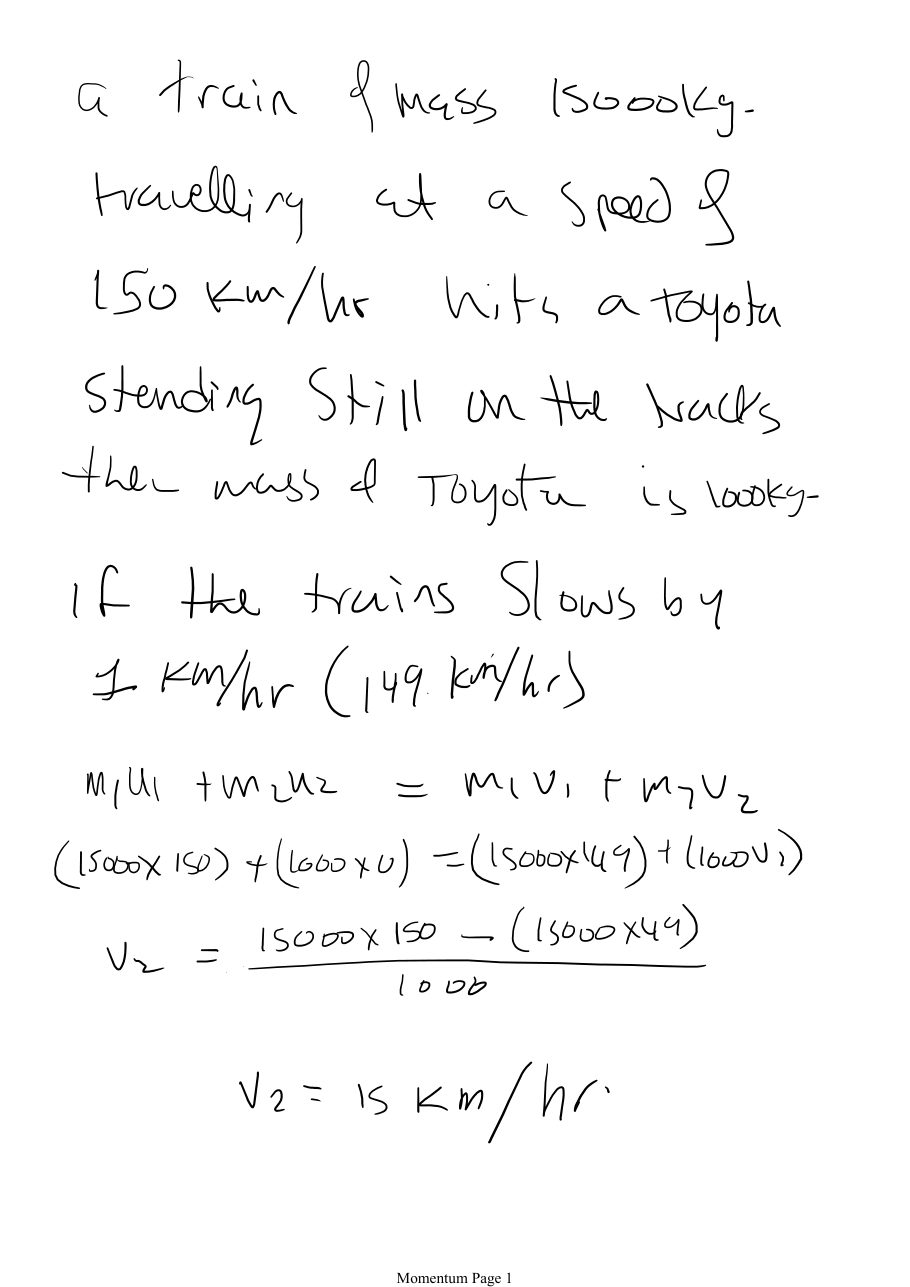 a train of mass 15000Kg-
travelling at a speed of
150 Km/hr hits a Toyota
Stending Still on the tracks
the mass of Toyota is 1000Kg-
if the trains Slows by
1 Km/hr (149 km/hr)
m₁u₁ + m₂u₂ = m₁v₁ + m₂v₂
(15000 x 150) + (1000 x 0) = (15000x149) + (1000V₂)
V₂ = 15000 x 150 - (15000 x 49)
1000
V₂ = 15 Km/hr.
Momentum Page 1